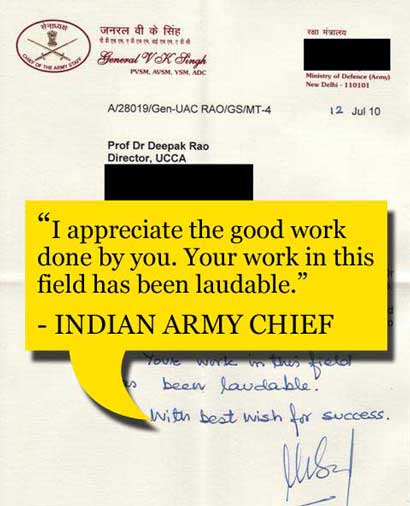 सेनाध्यक्ष
CHIEF OF THE ARMY STAFF
जनरल वी के सिंह
General V K Singh
PVSM, AVSM, YSM, ADC
रक्षा मंत्रालय
Ministry of Defence (Army)
New Delhi - 110101
A/28019/Gen-UAC RAO/GS/MT-4
12 Jul 10
Prof Dr Deepak Rao
Director, UCCA
“I appreciate the good work
done by you. Your work in this
field has been laudable.”
- INDIAN ARMY CHIEF
Your work in this field
been laudable.
With best wish for success.